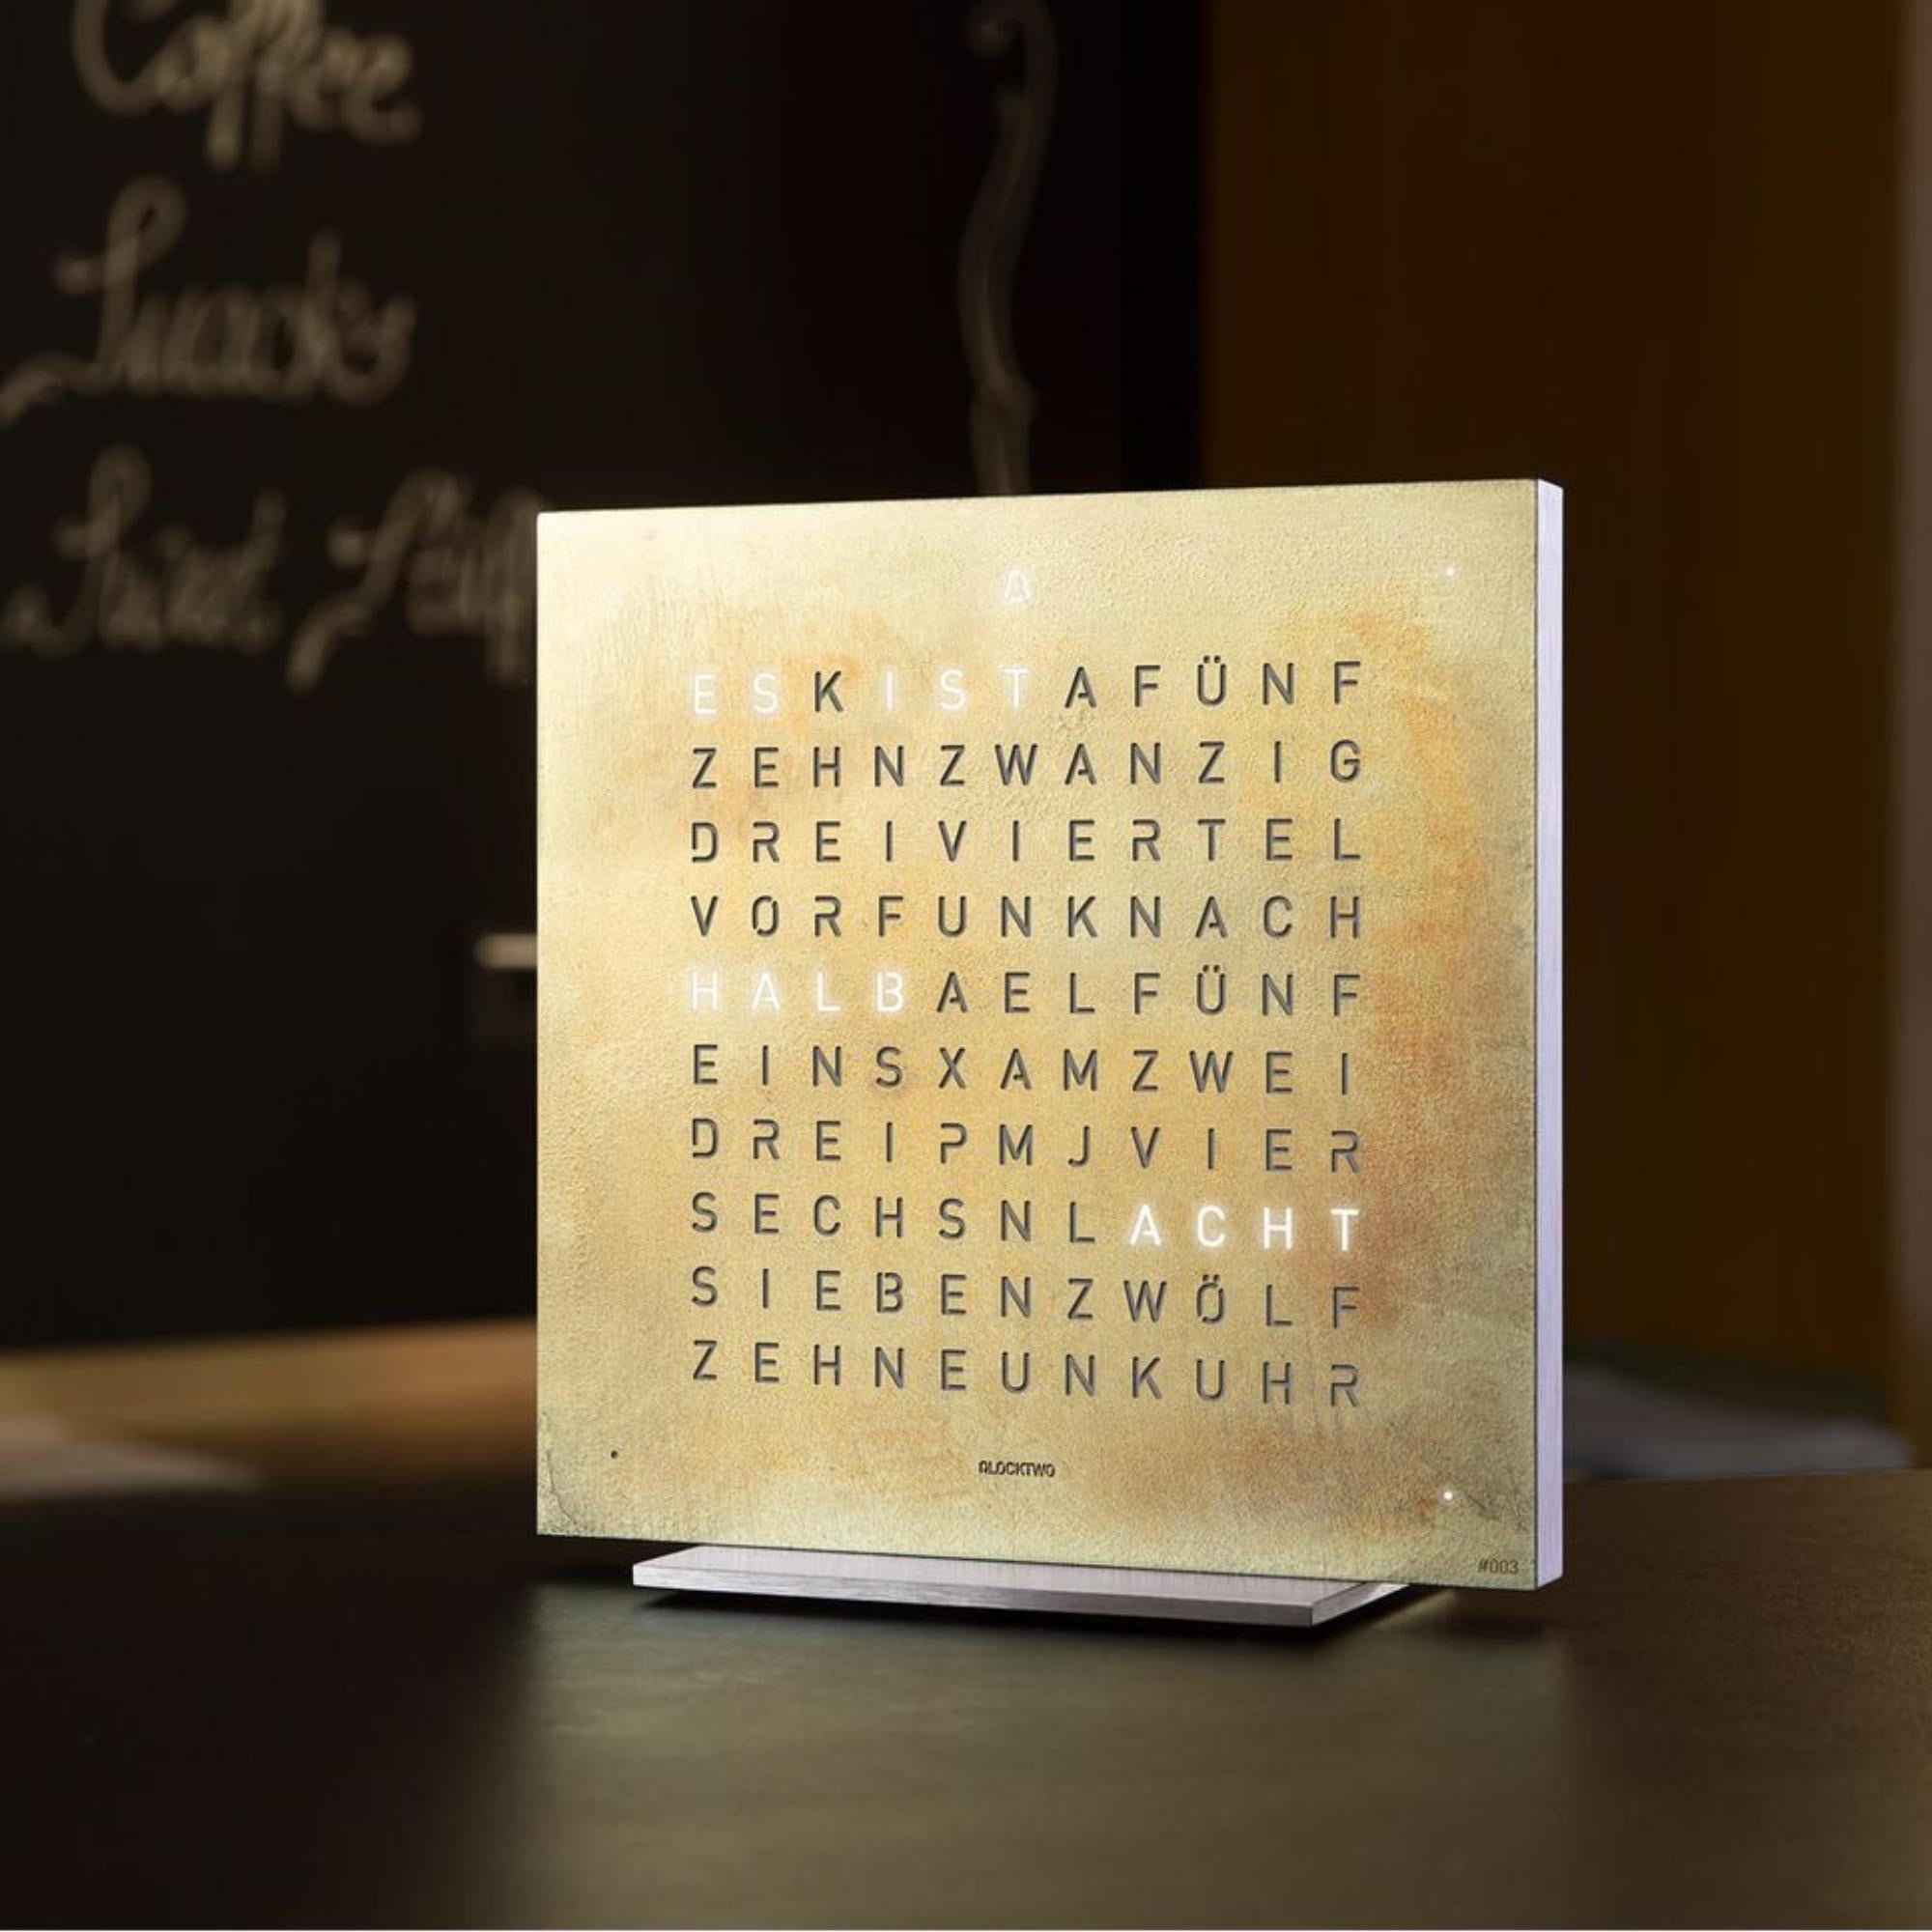 Coffee
Snacks
ESKISTAFÜNF
ZEHNZWANZIG
DREIVIERTEL
VORFUNKNACH
HALBAELFÜNF
EINSXAMZWEI
DREIPMJVIER
SECHSNLACHT
SIEBENZWÖLF
ZEHNEUNKUHR
QLOCKTWO
#003